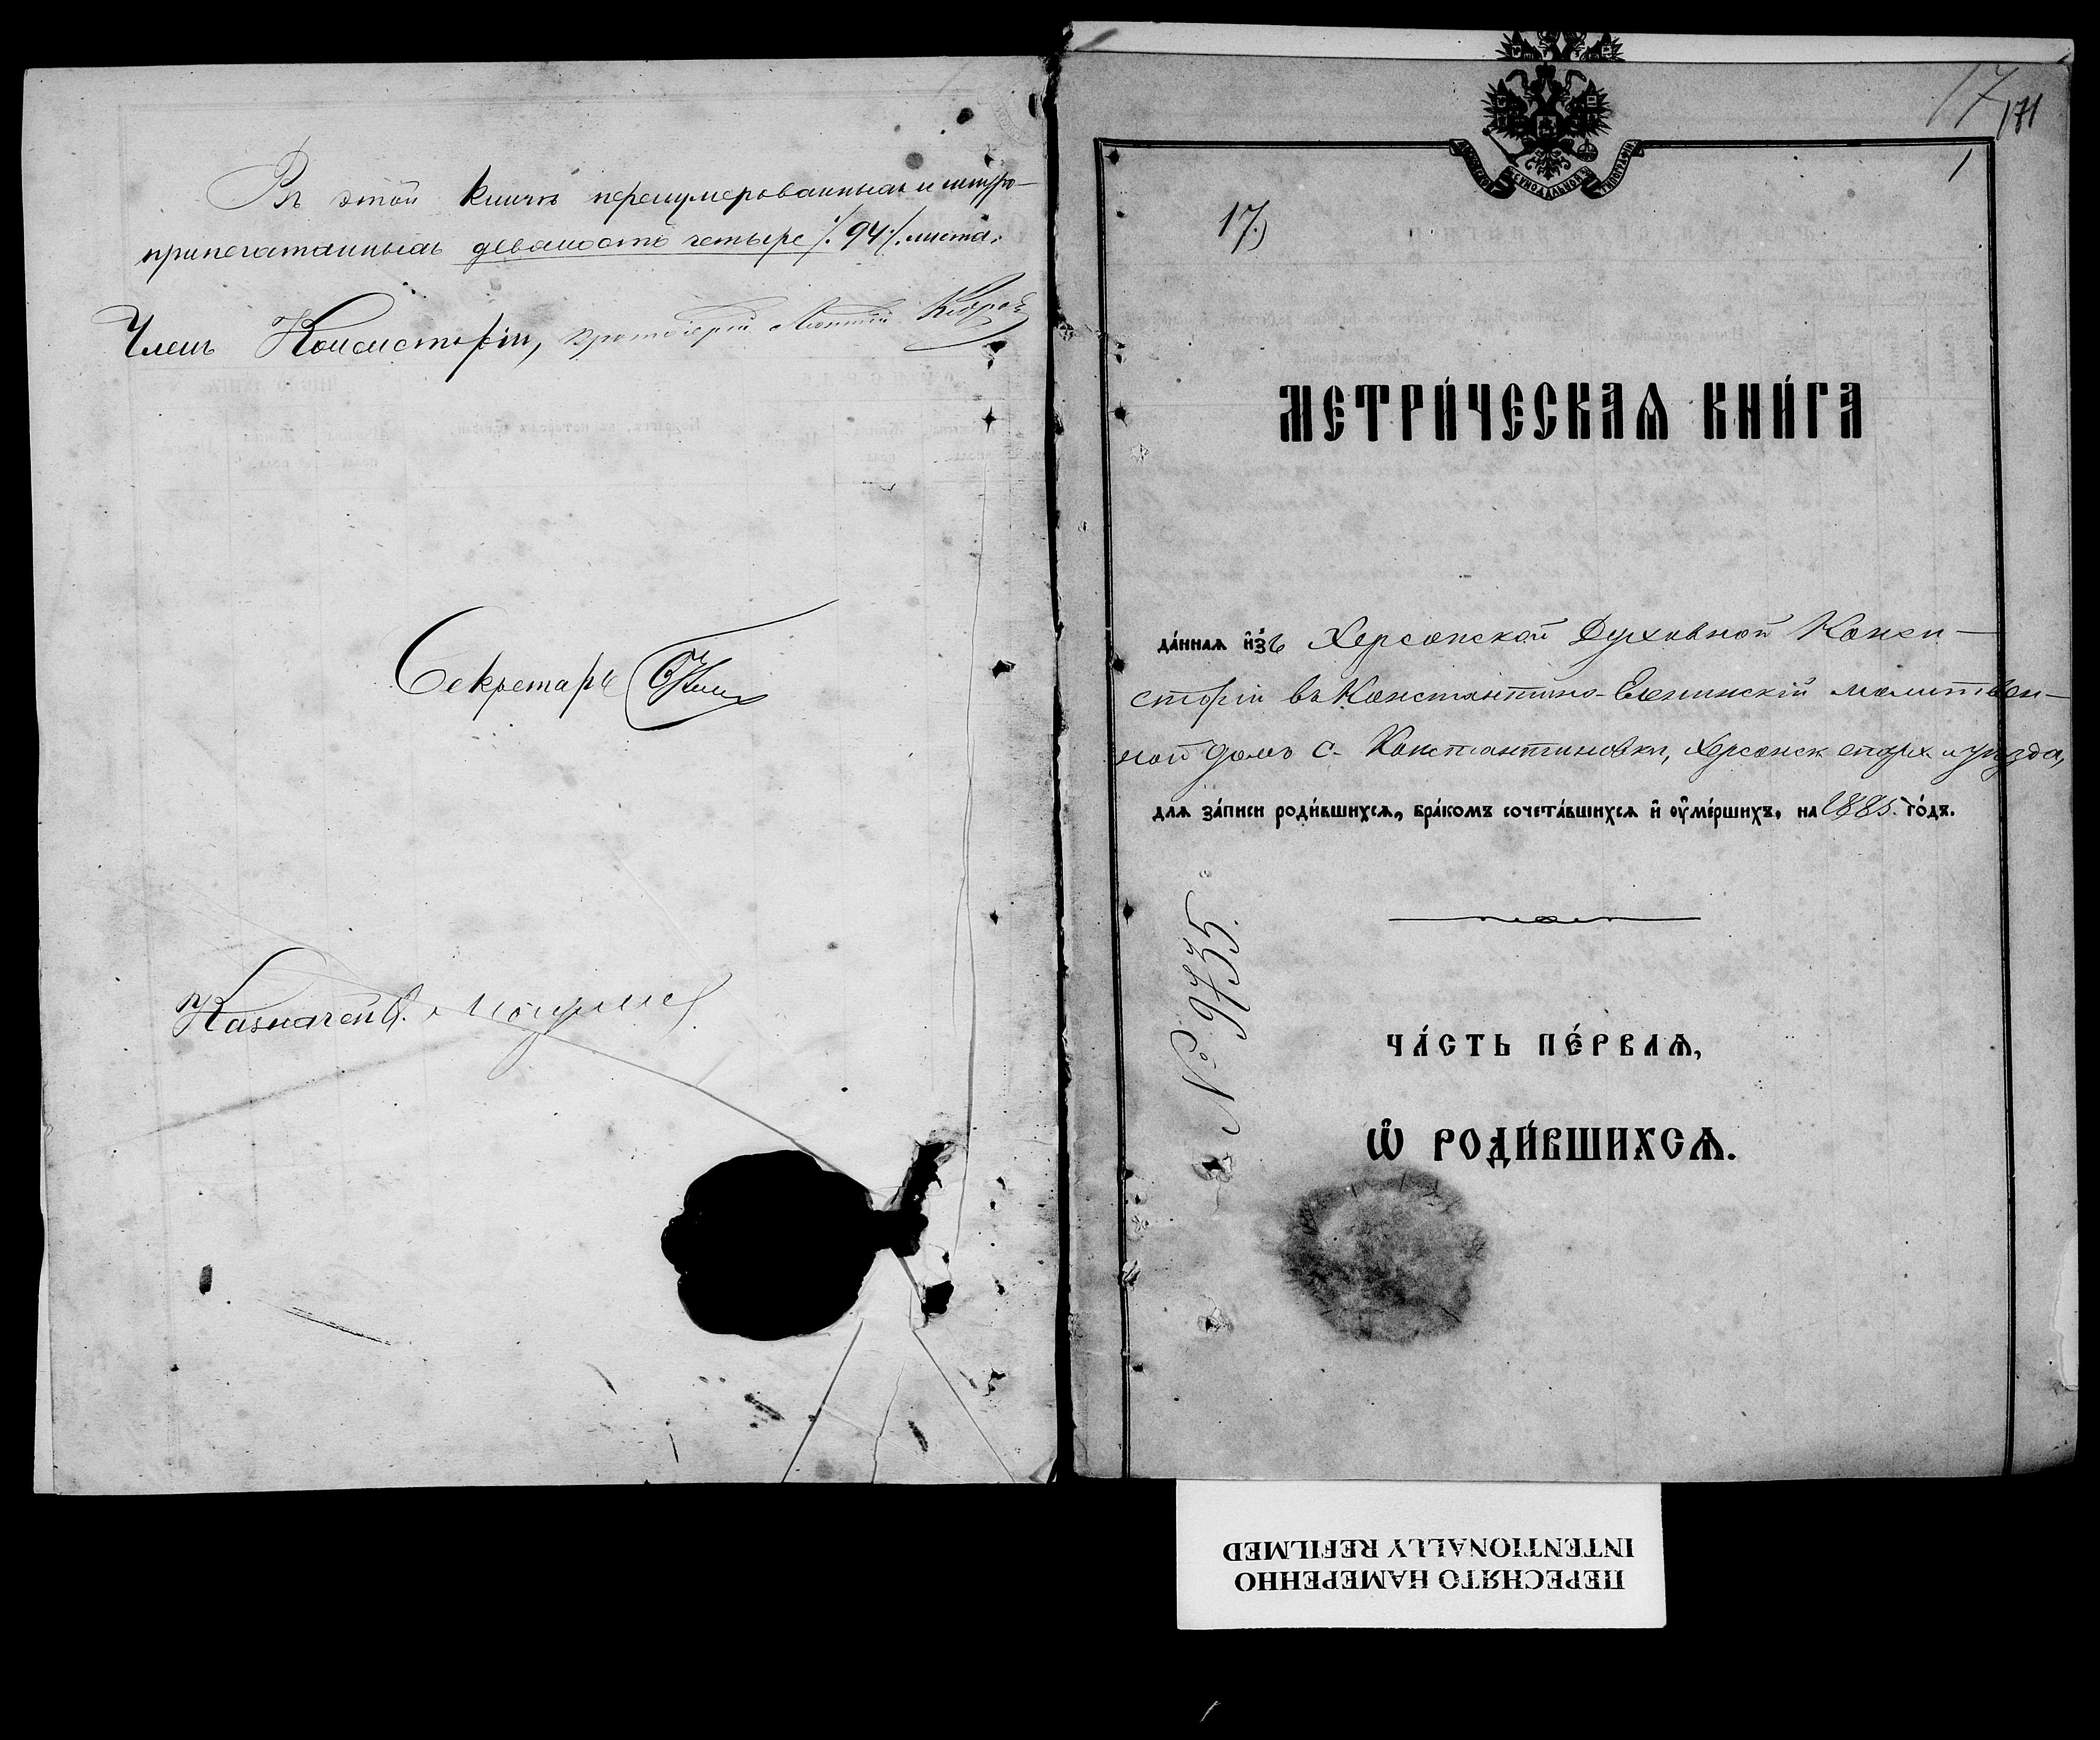 Въ этой книгѣ перенумерованныхъ и шнуро-
припечатанныхъ девяносто четыре /.94/. листа.
Членъ Консисторіи, Протоіерей
Секретарь
Казначей
17
171
1
17.)
МЕТРИ́ЧЕСКАѦ КНИ́ГА
да́ннаѧ и҆зъ Херсонской Духовной Конси-
сторіи въ Константино-Еленинскій молитвен-
ной домъ с. Константиновки, Херсонск. епарх. и уѣзда,
для за́писи роди́вшихсѧ, бра́комъ сочета́вшихсѧ и҆ оу҆ме́ршихъ, на 1885. го́дъ.
№ 9735.
ЧА́СТЬ ПЕ́РВАѦ,
Ѡ҆ РОДИ́ВШИХСѦ.
ПЕРЕСНЯТО НАМЕРЕННО
INTENTIONALLY REFILMED